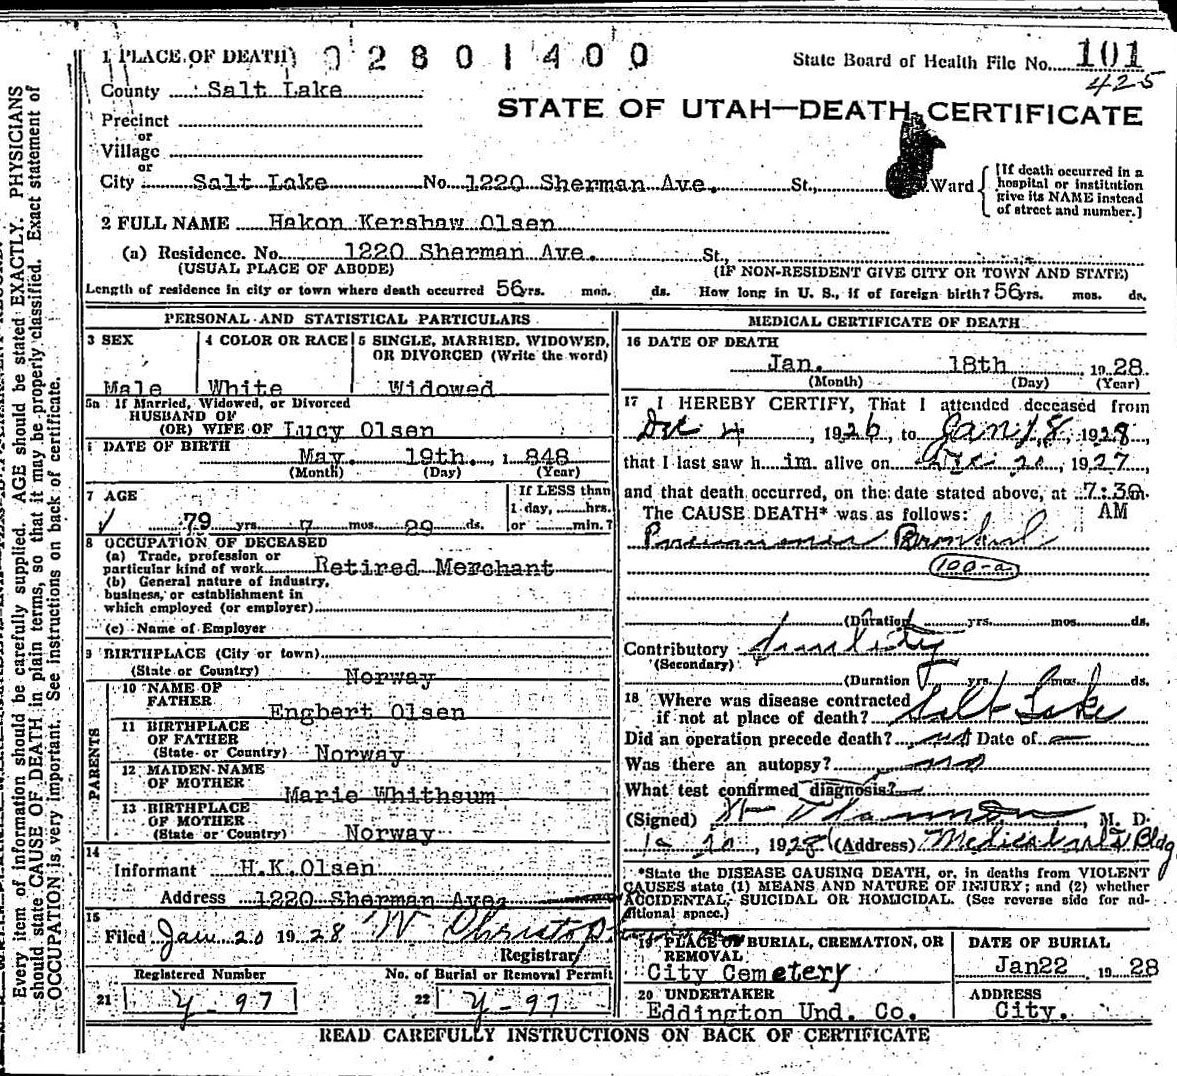 1 PLACE OF DEATH
02801400
State Board of Health File No. 101
425
County Salt Lake
STATE OF UTAH—DEATH CERTIFICATE
Precinct
or
Village
or
City Salt Lake No. 1220 Sherman Ave. St., Ward
[If death occurred in a hospital or institution give its NAME instead of street and number.]
2 FULL NAME Hakon Kershaw Olsen
(a) Residence. No. 1220 Sherman Ave. St.,
(USUAL PLACE OF ABODE) (IF NON-RESIDENT GIVE CITY OR TOWN AND STATE)
Length of residence in city or town where death occurred 56 yrs. mos. ds. How long in U. S., if of foreign birth? 56 yrs. mos. ds.
PERSONAL AND STATISTICAL PARTICULARS
3 SEX 4 COLOR OR RACE 5 SINGLE, MARRIED, WIDOWED,
OR DIVORCED (Write the word)
Male White Widowed
5a If Married, Widowed, or Divorced
HUSBAND OF
(OR) WIFE OF Lucy Olsen
DATE OF BIRTH
May. 19th., 1 848
(Month) (Day) (Year)
7 AGE
79 yrs. 7 mos. 29 ds.
If LESS than
1 day, hrs.
or min.?
8 OCCUPATION OF DECEASED
(a) Trade, profession or
particular kind of work Retired Merchant
(b) General nature of industry,
business, or establishment in
which employed (or employer)
(c) Name of Employer
9 BIRTHPLACE (City or town)
(State or Country) Norway
PARENTS
10 NAME OF
FATHER Engbert Olsen
11 BIRTHPLACE
OF FATHER
(State or Country) Norway
12 MAIDEN NAME
OF MOTHER Marie Whithsum
13 BIRTHPLACE
OF MOTHER
(State or Country) Norway
14
Informant H.K.Olsen
Address 1220 Sherman Ave
15
Filed Jan 20 1928 W Christop
Registrar
Registered Number No. of Burial or Removal Permit
21 Y-97 22 Y-97
MEDICAL CERTIFICATE OF DEATH
16 DATE OF DEATH
Jan. 18th 1928.
(Month) (Day) (Year)
17 I HEREBY CERTIFY, That I attended deceased from
Dec 4, 1926, to Jan 18, 1928,
that I last saw h im. alive on Dec 20, 1927
and that death occurred, on the date stated above, at 7:30 m.
AM
The CAUSE DEATH* was as follows:
Pneumonia Bronchial
100-a
(Duration) yrs. mos. ds.
Contributory Senility
(Secondary)
(Duration yrs. mos. ds.
18 Where was disease contracted
if not at place of death? Salt Lake
Did an operation precede death? no Date of
Was there an autopsy? no
What test confirmed diagnosis?
(Signed) M. D.
20, 1928 (Address) Medical Arts Bldg
*State the DISEASE CAUSING DEATH, or, in deaths from VIOLENT
CAUSES state (1) MEANS AND NATURE OF INJURY; and (2) whether
ACCIDENTAL, SUICIDAL OR HOMICIDAL. (See reverse side for ad-
ditional space.)
19 PLACE OF BURIAL, CREMATION, OR
REMOVAL
City Cemetery
DATE OF BURIAL
Jan22, 1928
20 UNDERTAKER
Eddington Und. Co.
ADDRESS
City.
READ CAREFULLY INSTRUCTIONS ON BACK OF CERTIFICATE
Every item of information should be carefully supplied. AGE should be stated EXACTLY. PHYSICIANS
should state CAUSE OF DEATH in plain terms, so that it may be properly classified. Exact statement of
OCCUPATION is very important. See instructions on back of certificate.